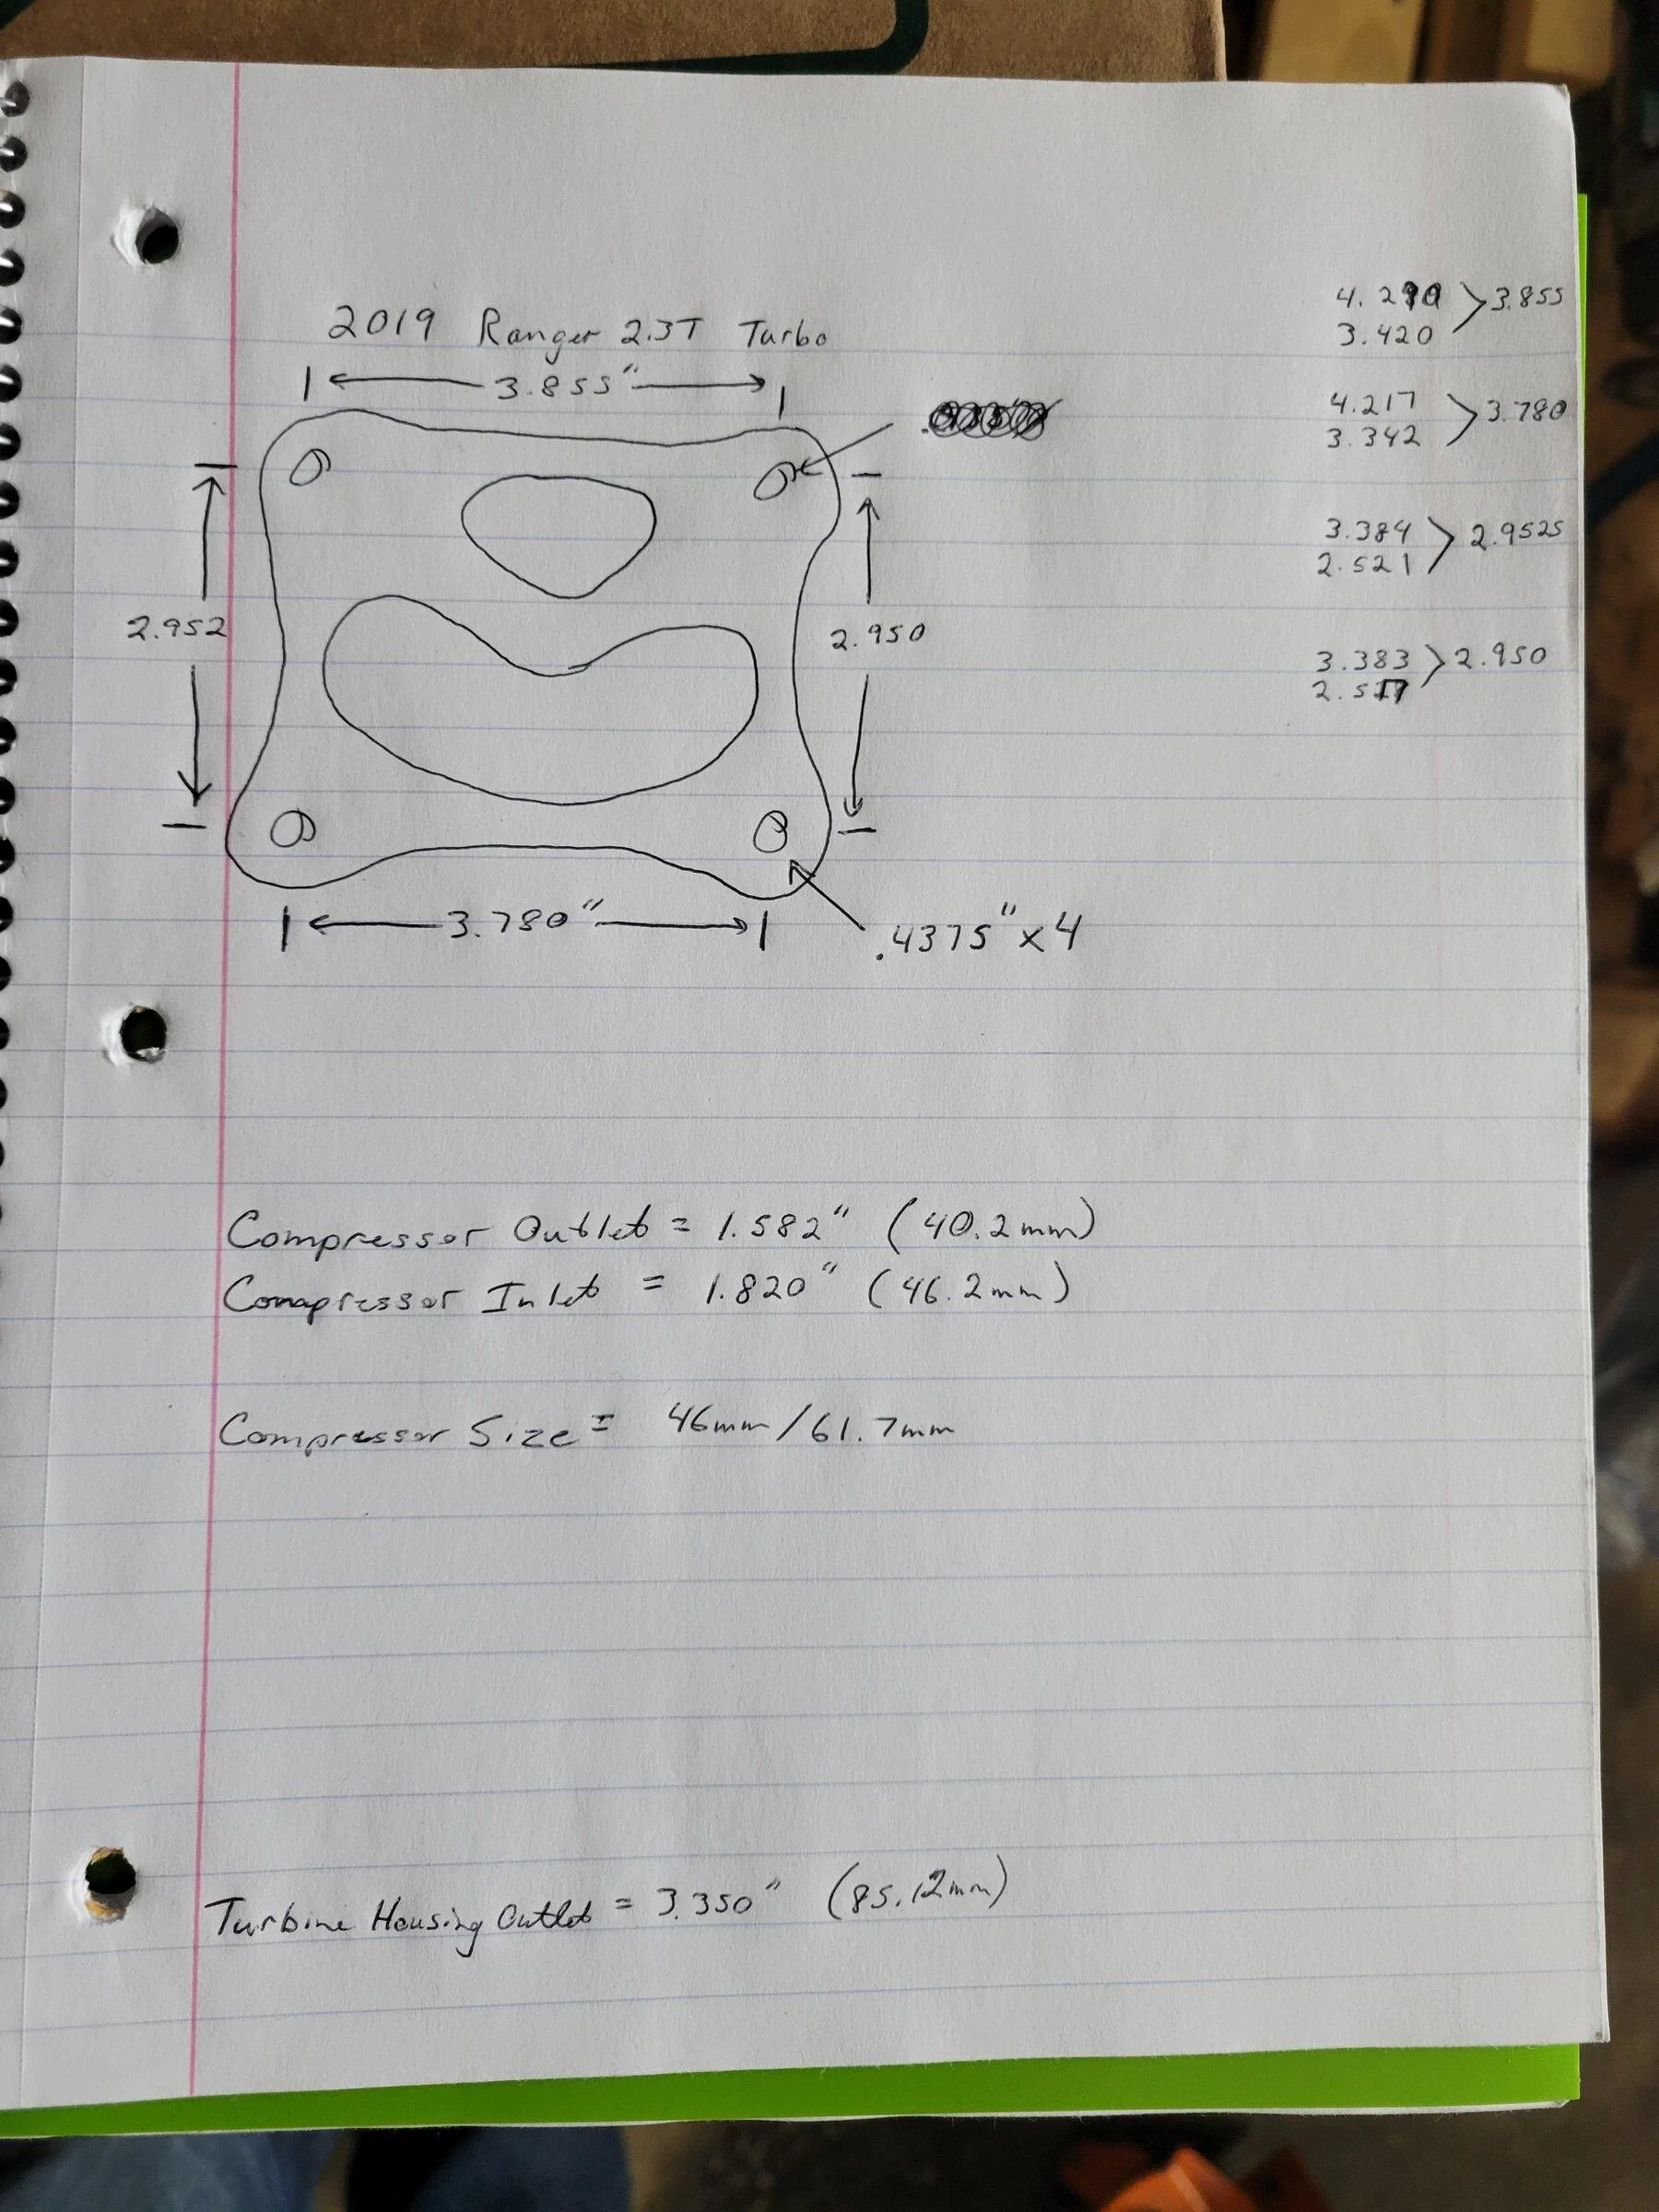 2019 Ranger 2.3T Turbo
3.855"
2.952
2.950
3.780"
.4375" x 4
4.290 > 3.855
3.420
4.217 > 3.780
3.342
3.384 > 2.9525
2.521
3.383 > 2.950
2.517
Compressor Outlet = 1.582" (40.2mm)
Compressor Inlet = 1.820" (46.2mm)
Compressor Size = 46mm/61.7mm
Turbine Housing Outlet = 3.350" (85.12mm)